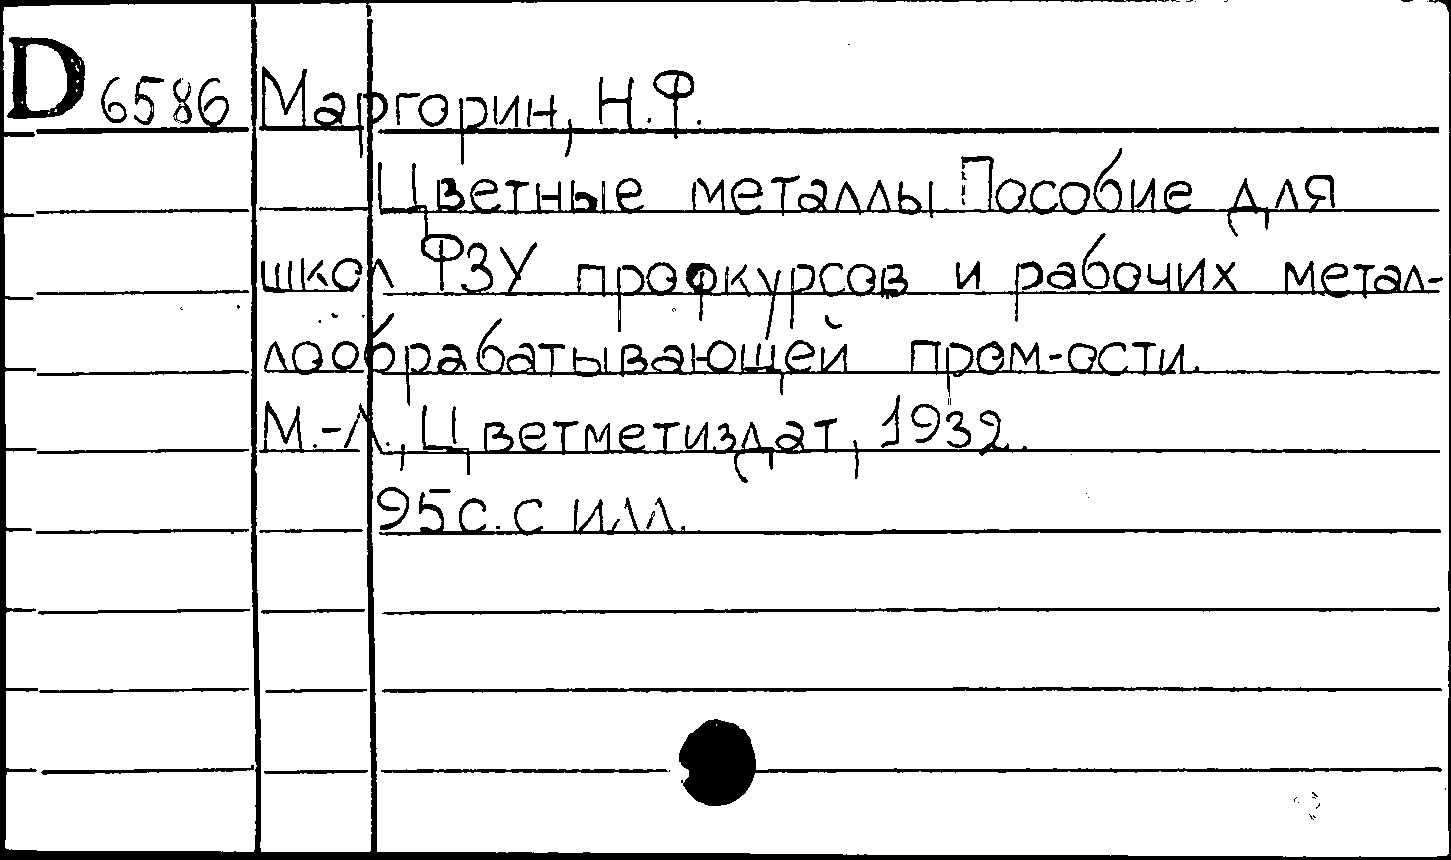 D 6586 Маргорин, Н.Ф.
Цветные металлы Пособие для
школ ФЗУ профкурсов и рабочих метал-
лообрабатывающей пром-ости.
М.-Л., Цветметиздат, 1932.
95 с. с илл.